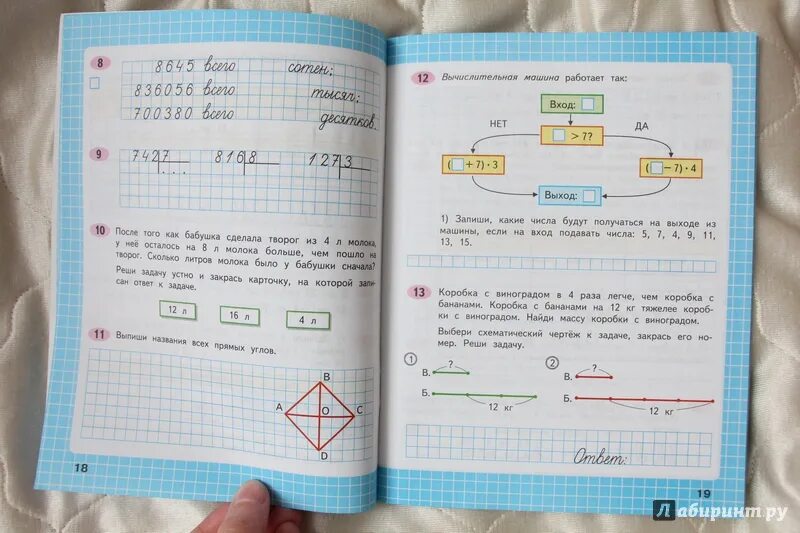 8
8645 всего сотен;
836056 всего тысяч;
700380 всего десятков.
9
742 7 816 8 127 3
...
10 После того как бабушка сделала творог из 4 л молока,
у неё осталось на 8 л молока больше, чем пошло на
творог. Сколько литров молока было у бабушки сначала?
Реши задачу устно и закрась карточку, на которой запи-
сан ответ к задаче.
12 л 16 л 4 л
11 Выпиши названия всех прямых углов.
B
A O C
D
18
12 Вычислительная машина работает так:
Вход:
НЕТ ДА
> 7?
( + 7) · 3 ( − 7) · 4
Выход:
1) Запиши, какие числа будут получаться на выходе из
машины, если на вход подавать числа: 5, 7, 4, 9, 11,
13, 15.
13 Коробка с виноградом в 4 раза легче, чем коробка с
бананами. Коробка с бананами на 12 кг тяжелее короб-
ки с виноградом. Найди массу коробки с виноградом.
Выбери схематический чертёж к задаче, закрась его но-
мер. Реши задачу.
1 ? 2 ?
В. В.
Б. Б.
12 кг 12 кг
Ответ:
19
Лабиринт.ру